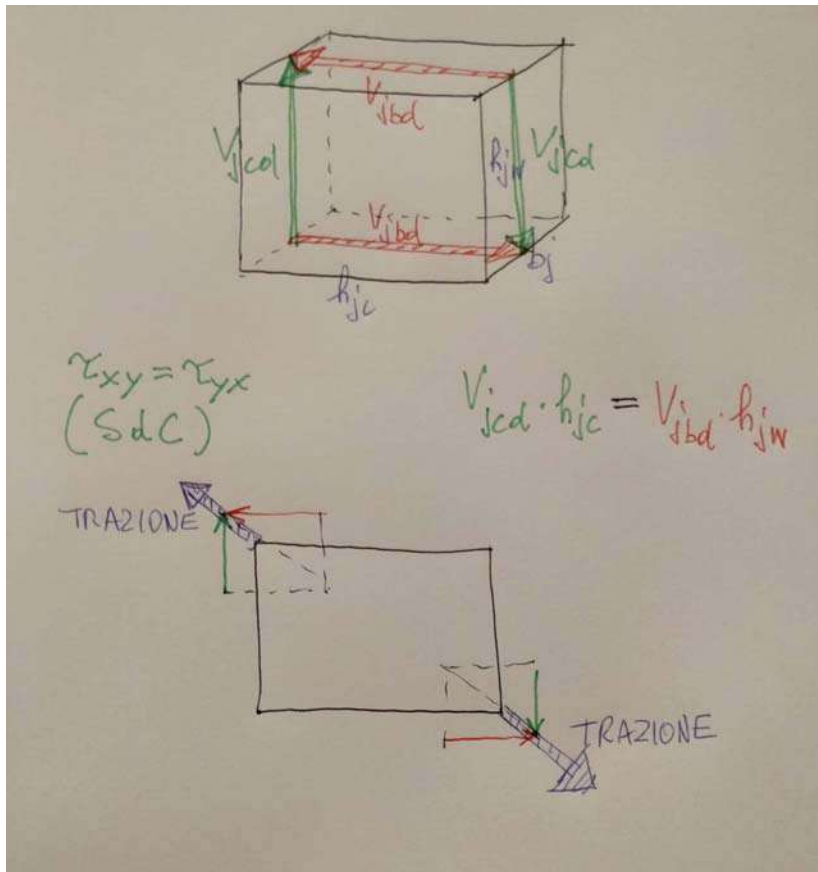 V_jbd
V_jcd
h_jw
V_jcd
V_jbd
b_j
h_jc
τ_xy = τ_yx
(SdC)
V_jcd · h_jc = V_jbd · h_jw
TRAZIONE
TRAZIONE